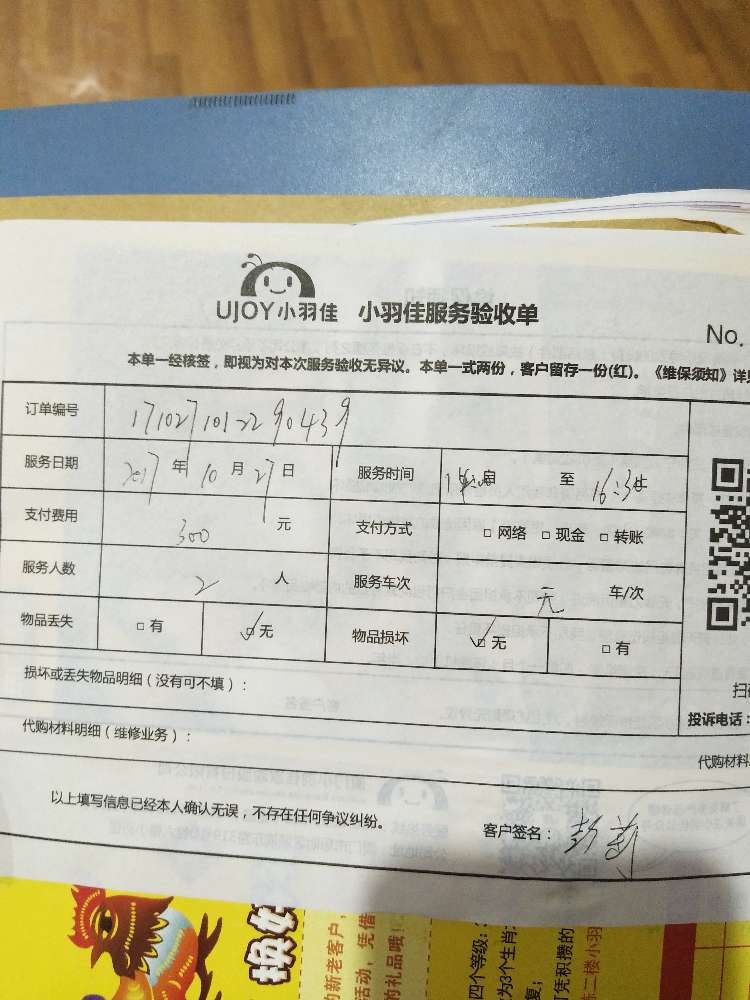 UJOY小羽佳 小羽佳服务验收单
No.
本单一经核签，即视为对本次服务验收无异议。本单一式两份，客户留存一份(红)。《维保须知》详
订单编号 1710271012290439
服务日期 2017年10月27日 服务时间 至 16:30
支付费用 300 元 支付方式 □网络 □现金 □转账
服务人数 2 人 服务车次 无 车/次
物品丢失 □有 ☑无 物品损坏 ☑无 □有
损坏或丢失物品明细（没有可不填）：
扫
投诉电话：
代购材料明细（维修业务）：
代购材料
以上填写信息已经本人确认无误，不存在任何争议纠纷。
客户签名：彭
换好
的新老客户，
活动，凭借
的礼品哦！
四个等级：
为3个生肖
复；
可凭积攒的
二楼小羽